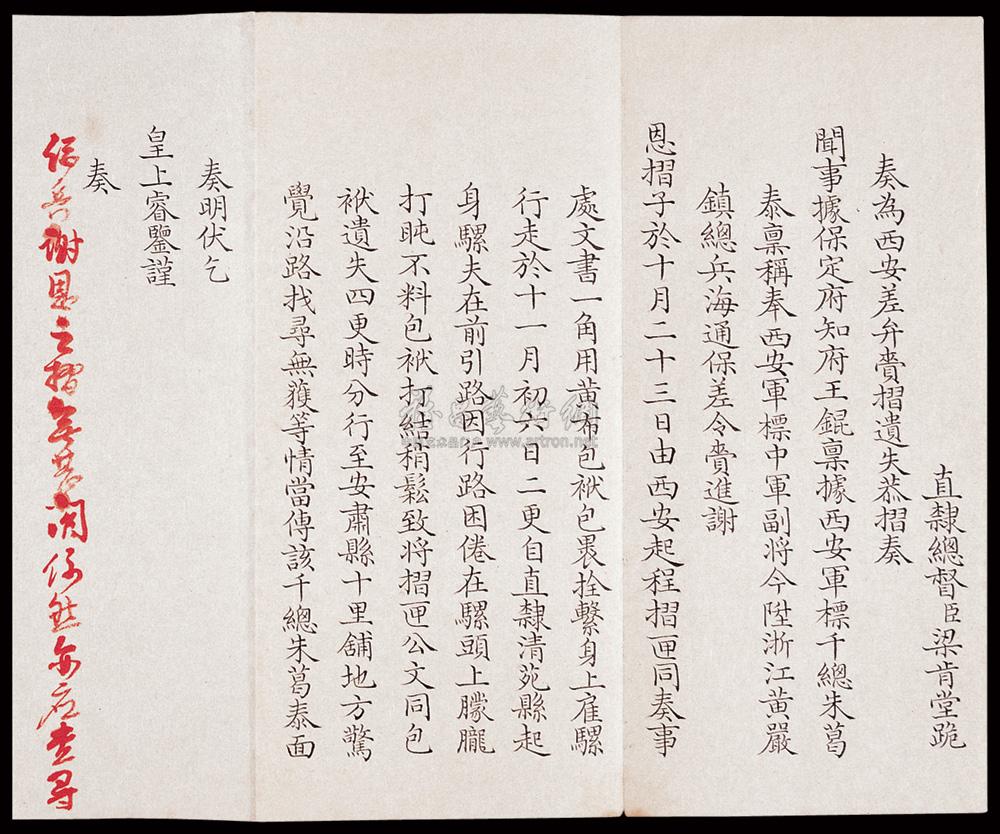 直隸總督臣梁肯堂跪
奏為西安差弁賫摺遺失恭摺奏
聞事據保定府知府王錕稟據西安軍標千總朱葛
泰稟稱奉西安軍標中軍副將今陞浙江黃嚴
鎮總兵海通保差令賫進謝
恩摺子於十月二十三日由西安起程摺匣同奏事
處文書一角用黃布包袱包裹拴繫身上雇騾
行走於十一月初六日二更自直隸清苑縣起
身騾夫在前引路因行路困倦在騾頭上朦朧
打盹不料包袱打結稍鬆致將摺匣公文同包
袱遺失四更時分行至安肅縣十里舖地方驚
覺沿路找尋無獲等情當傳該千總朱葛泰面
奏明伏乞
皇上睿鑒謹
奏
係兵謝恩之摺無甚関係然亦应查尋
www.artron.net